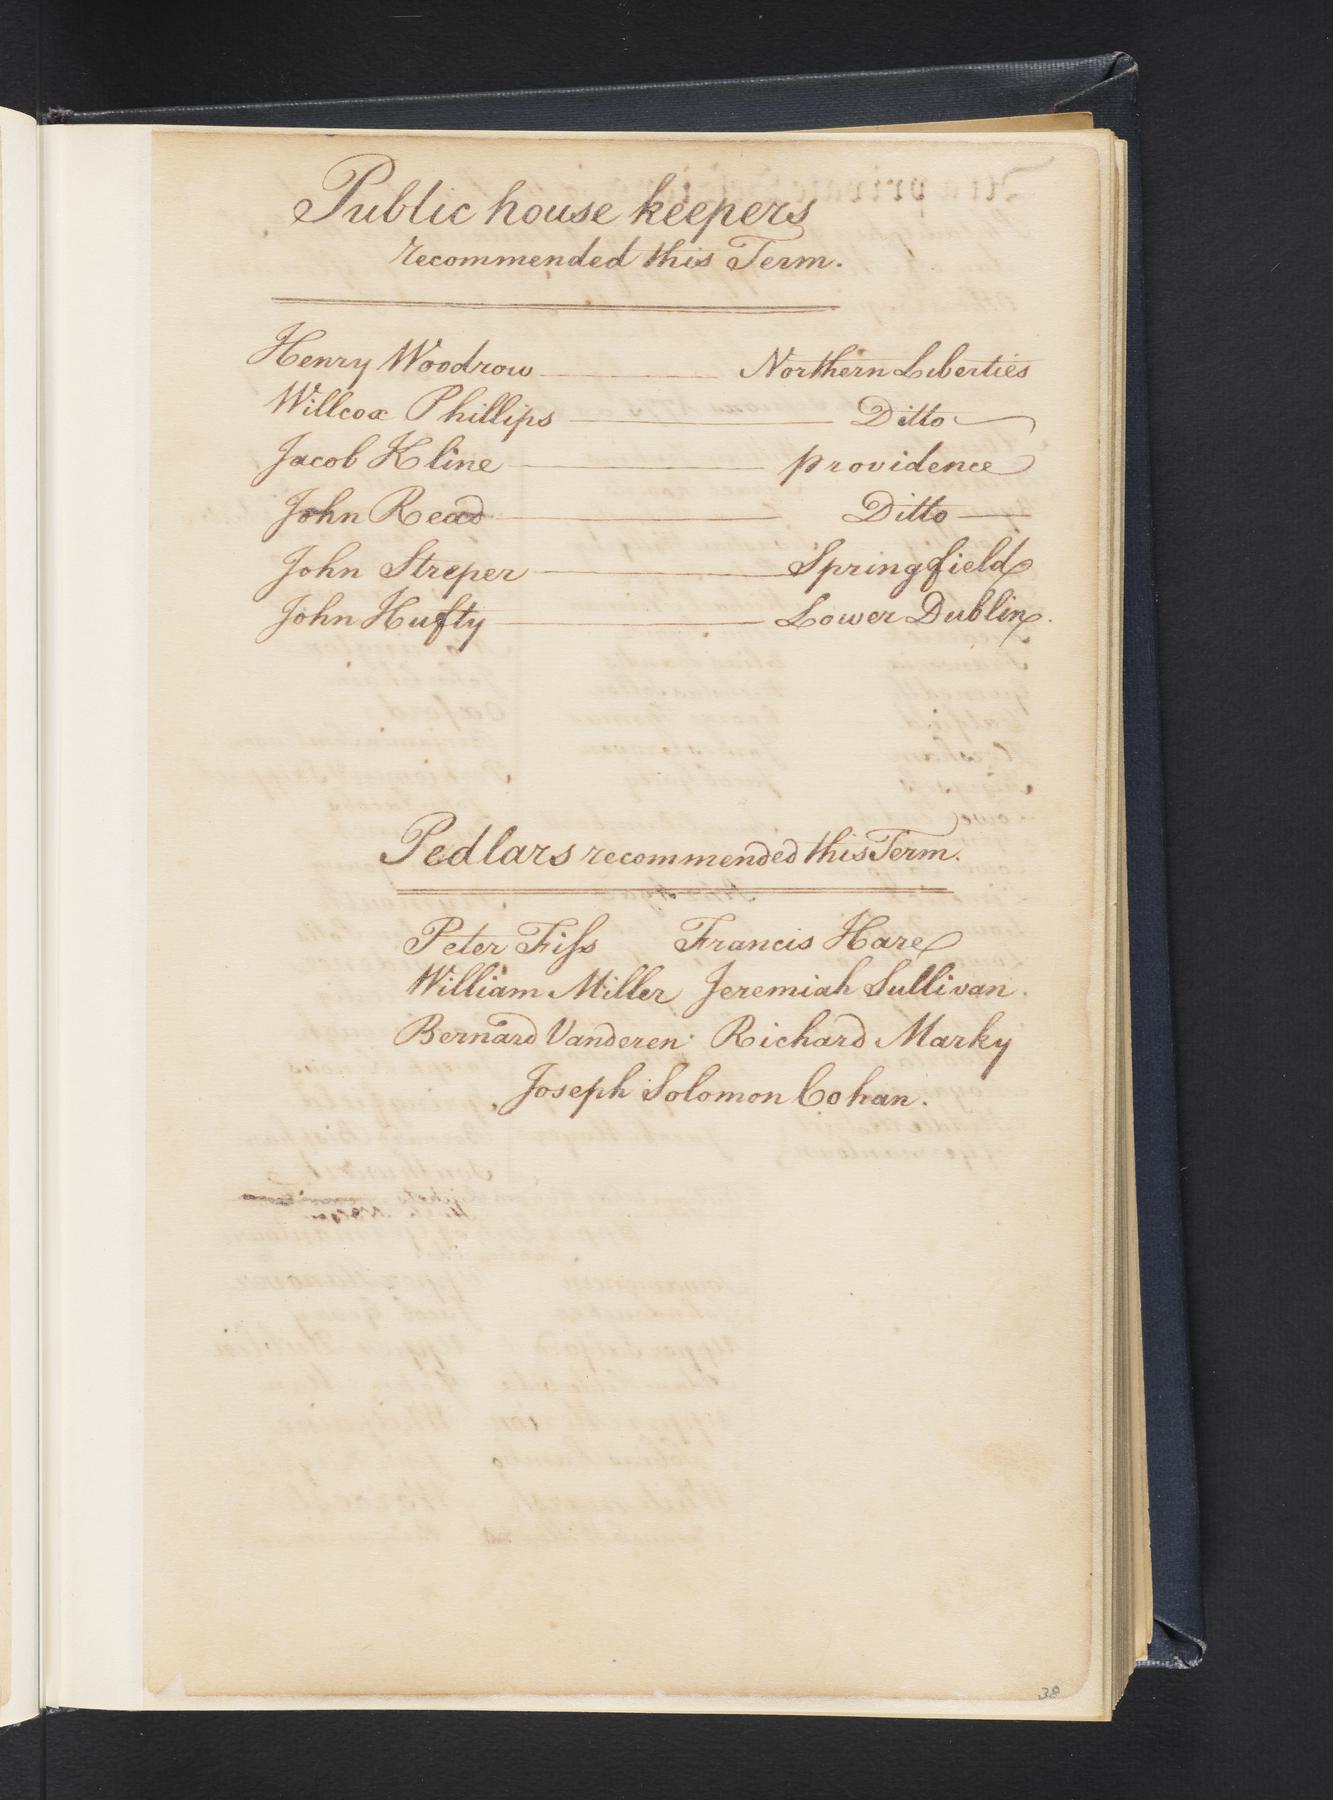 Public house keepers
recommended this Term.
Henry Woodrow Northern Liberties
Willcox Phillips Ditto
Jacob Kline providence
John Read Ditto
John Streper Springfield
John Hufty Lower Dublin.
Pedlars recommended this Term.
Peter Fiſs Francis Hare
William Miller Jeremiah Sullivan.
Bernard Vanderen Richard Marky
Joseph Solomon Cohan.
38